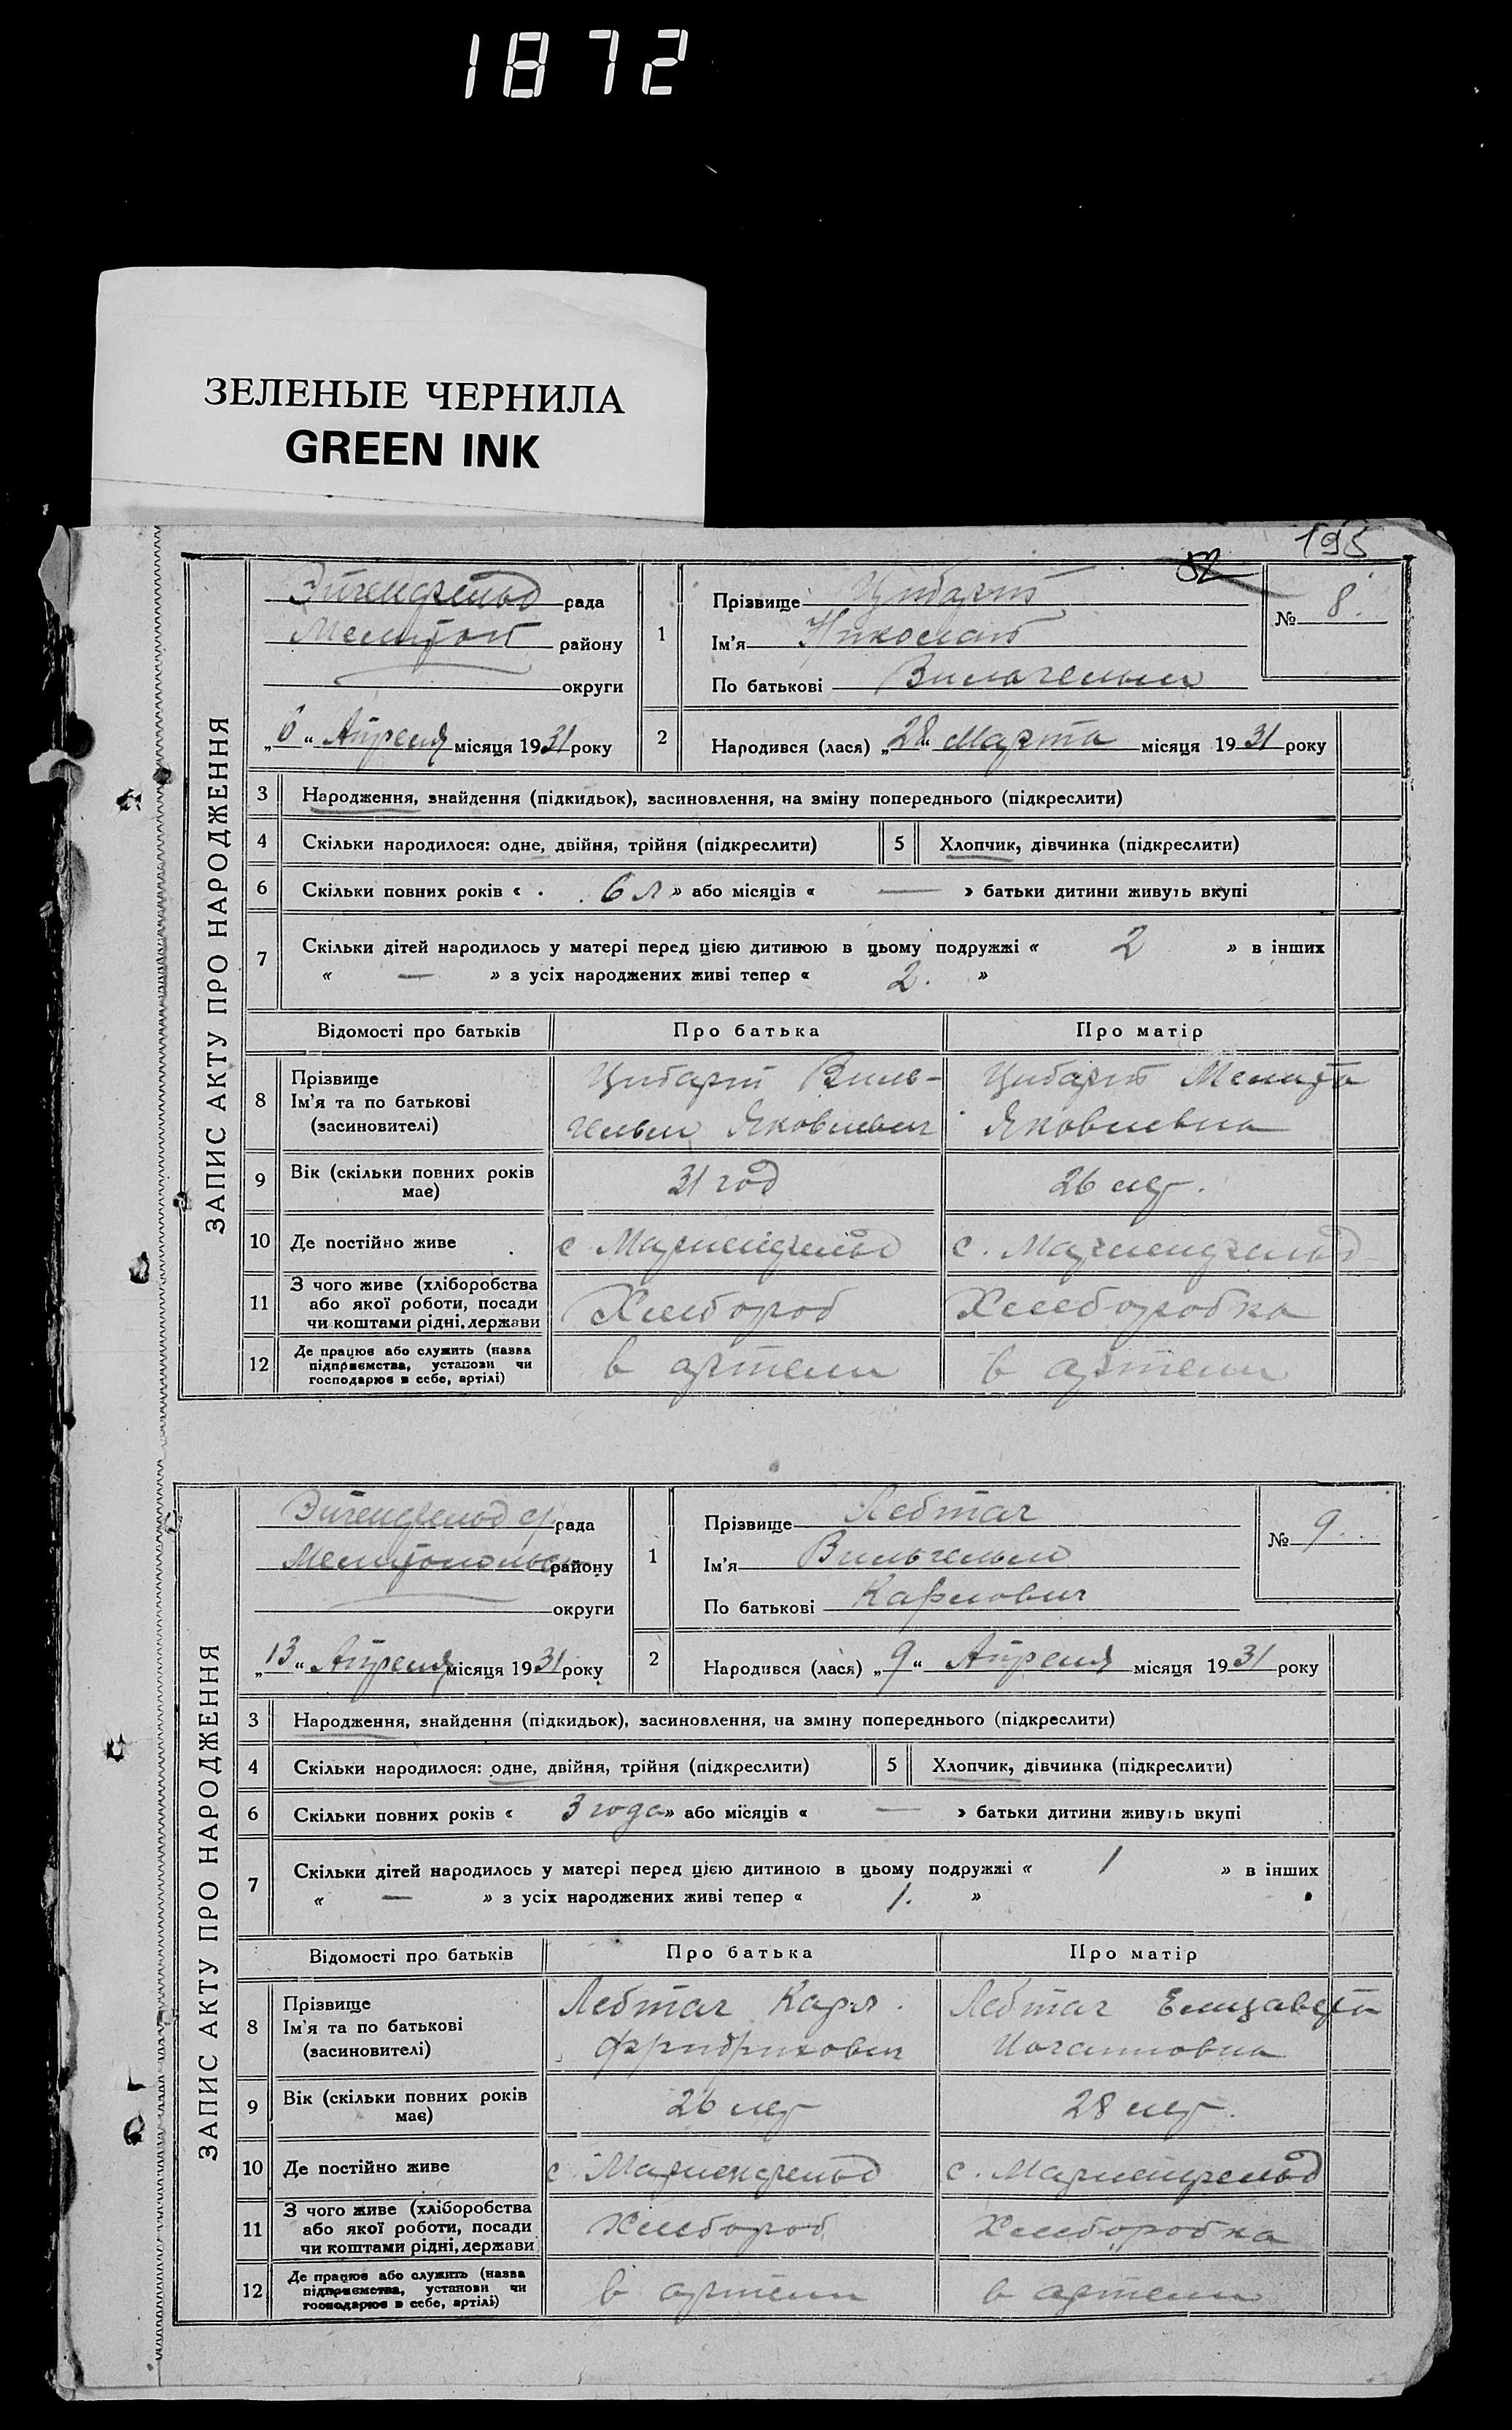 1872
ЗЕЛЕНЫЕ ЧЕРНИЛА
GREEN INK
195
52
ЗАПИС АКТУ ПРО НАРОДЖЕННЯ
Эйгенфельд рада
Мелитоп району
округи
„6“ Апреля місяця 1931 року
1
Прізвище Цибарт
Ім'я Николай
По батькові Вильгельм
№ 8.
2
Народився (лася) „28“ Марта місяця 1931 року
3 Народження, знайдення (підкидьок), засиновлення, на зміну попереднього (підкреслити)
4 Скільки народилося: одне, двійня, трійня (підкреслити) 5 Хлопчик, дівчинка (підкреслити)
6 Скільки повних років « 6 л » або місяців « — » батьки дитини живуть вкупі
7 Скільки дітей народилось у матері перед цією дитиною в цьому подружжі « 2 » в інших
« — » з усіх народжених живі тепер « 2. »
Відомості про батьків Про батька Про матір
8 Прізвище
Ім'я та по батькові
(засиновителі)
Цибарт Виль-
гельм Яковлевич
Цибарт Мелита
Яковлевна
9 Вік (скільки повних років
має)
31 год
26 лет.
10 Де постійно живе с. Мариенфельд с. Мариенфельд
11 З чого живе (хліборобства
або якої роботи, посади
чи коштами рідні, держави
Хлебороб
Хлеборобка
12 Де працює або служить (назва
підприємства, установи чи
господарює в себе, артілі)
в артели
в артели
ЗАПИС АКТУ ПРО НАРОДЖЕННЯ
Эйгенфельд с/ рада
Мелитопольск району
округи
„13“ Апреля місяця 1931 року
1
Прізвище Лебтаг
Ім'я Вильгельм
По батькові Карлович
№ 9.
2
Народився (лася) „9“ Апреля місяця 1931 року
3 Народження, знайдення (підкидьок), засиновлення, на зміну попереднього (підкреслити)
4 Скільки народилося: одне, двійня, трійня (підкреслити) 5 Хлопчик, дівчинка (підкреслити)
6 Скільки повних років « 3 года » або місяців « — » батьки дитини живуть вкупі
7 Скільки дітей народилось у матері перед цією дитиною в цьому подружжі « 1 » в інших
« — » з усіх народжених живі тепер « 1. »
Відомості про батьків Про батька Про матір
8 Прізвище
Ім'я та по батькові
(засиновителі)
Лебтаг Карл
Фридрихович
Лебтаг Елизавета
Иогановна
9 Вік (скільки повних років
має)
26 лет
28 лет.
10 Де постійно живе с. Мариенфельд с. Мариенфельд
11 З чого живе (хліборобства
або якої роботи, посади
чи коштами рідні, держави
Хлебороб
Хлеборобка
12 Де працює або служить (назва
підприємства, установи чи
господарює в себе, артілі)
в артели
в артели